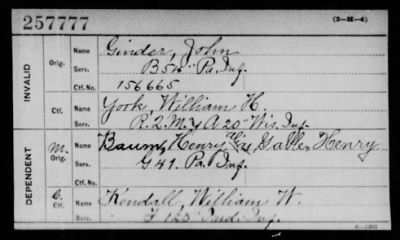 257777 (3-H-4)
INVALID
Orig. Name Ginder, John
Serv. B 54" Pa. Inf.
Ctf. No. 156665
Ctf. Name York, William H.
Serv. R.Q.M. & A 20" Wis. Inf.
DEPENDENT
M. Orig. Name Baum, Henry Henry
Serv. G 41. Pa. Inf.
Ctf. No.
C. Ctf. Name Kendall, William W.
Serv. 123" Ind. Inf.